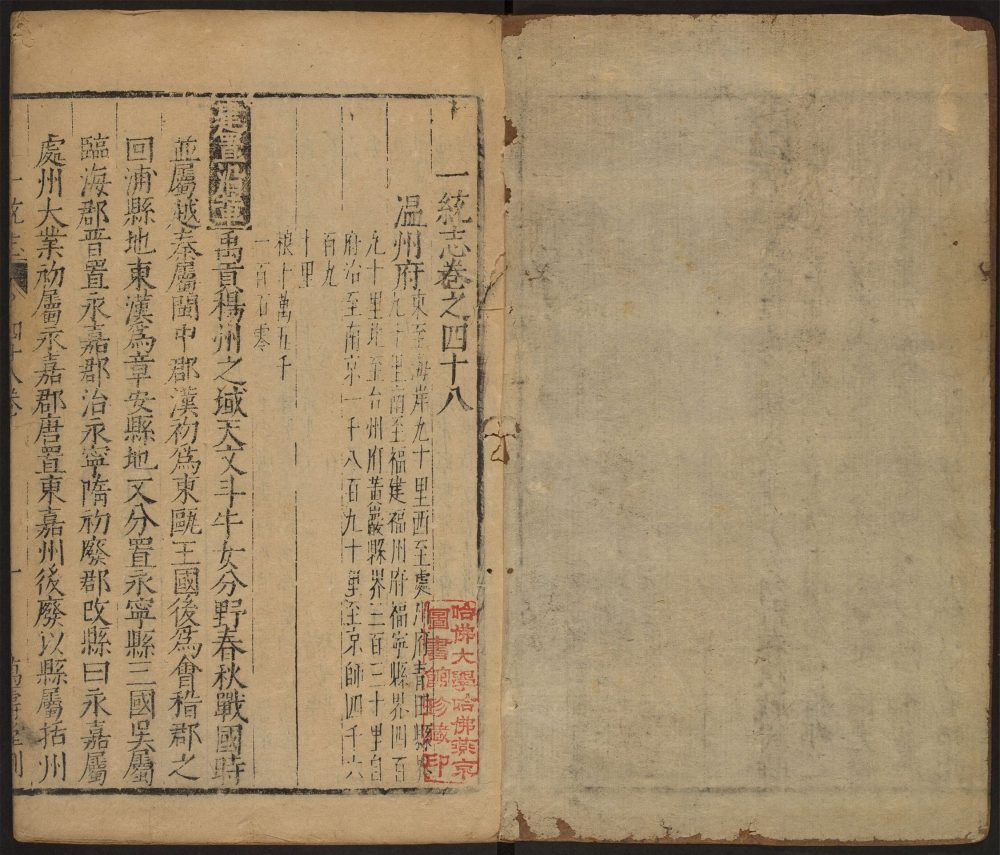 一統志卷之四十八
温州府東至海岸九十里西至處州府青田縣界
九十里南至福建福州府福寧縣界四百
九十里北至台州府黃巖縣界三百三十里自
府治至南京一千八百九十里至京師四千六
百九
十里
粮十萬五千
一百百零
建置沿革禹貢揚州之域天文斗牛女分野春秋戰國時
並屬越秦屬閩中郡漢初為東甌王國後為會稽郡之
回浦縣地東漢為章安縣地又分置永寧縣三國吳屬
臨海郡晋置永嘉郡治永寧隋初廢郡改縣曰永嘉屬
處州大業初屬永嘉郡唐置東嘉州後廢以縣屬括州
一統志 四十八卷 一
哈佛大學哈佛燕京
圖書館珍藏印